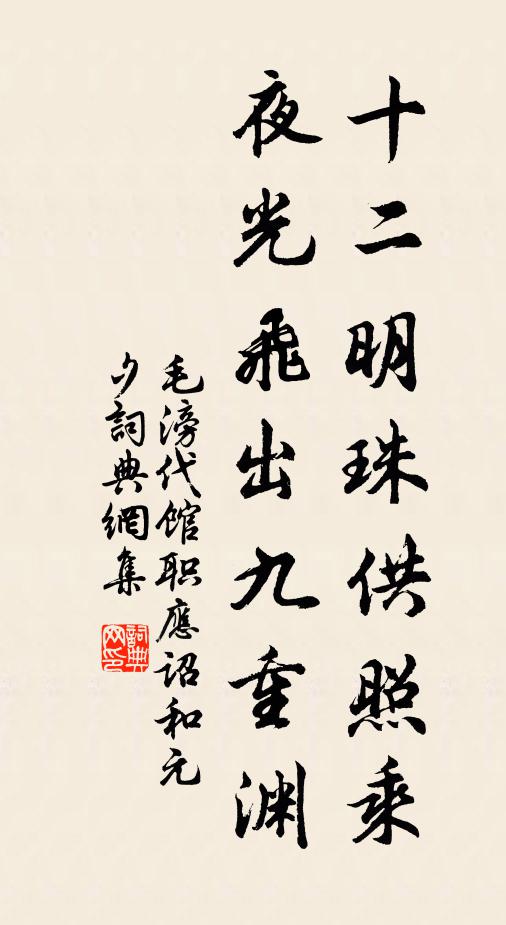 十二明珠供照乘
夜光飛出九重渊
毛滂代館职應詔和元
夕詞典網集
詞典网印